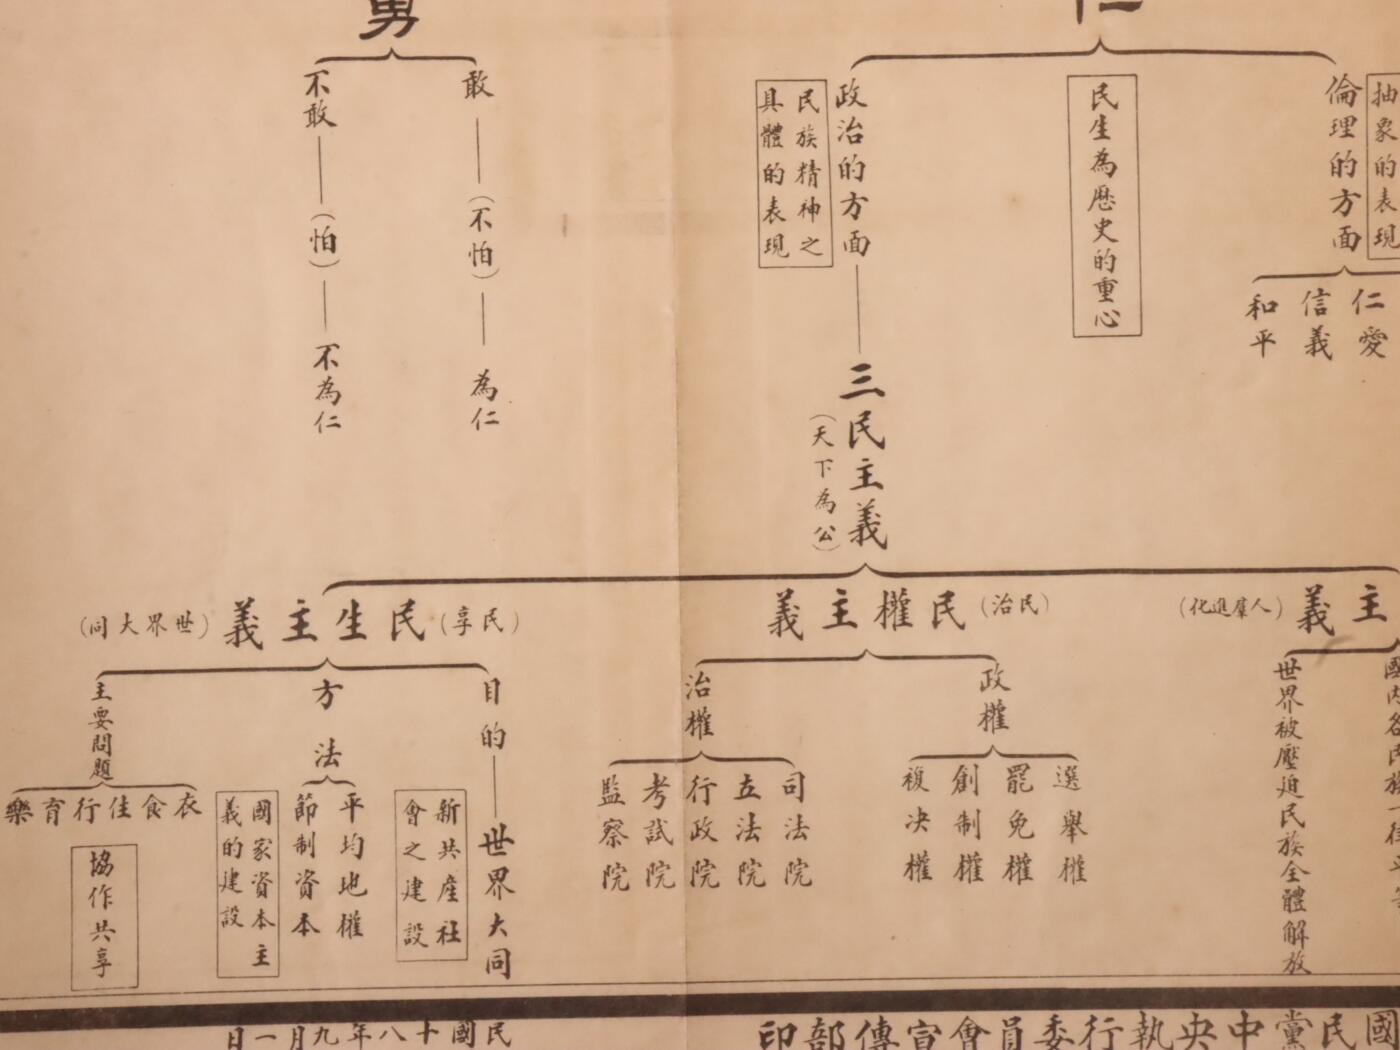 仁
倫理的方面
抽象的表現
仁愛
信義
和平
民生為歷史的重心
政治的方面
民族精神之
具體的表現
三民主義
(天下為公)
勇
敢
(不怕)
為仁
不敢
(怕)
不為仁
主義
(人羣進化)
世界被壓迫民族全體解放
(民治)
民權主義
政權
選舉權
罷免權
創制權
複决權
治權
司法院
立法院
行政院
考試院
監察院
(民享)
民生主義
(世界大同)
目的
世界大同
新共產社
會之建設
方法
平均地權
節制資本
國家資本主
義的建設
主要問題
衣食住行育樂
協作共享
國民黨中央執行委員會宣傳部印
民國十八年九月一日